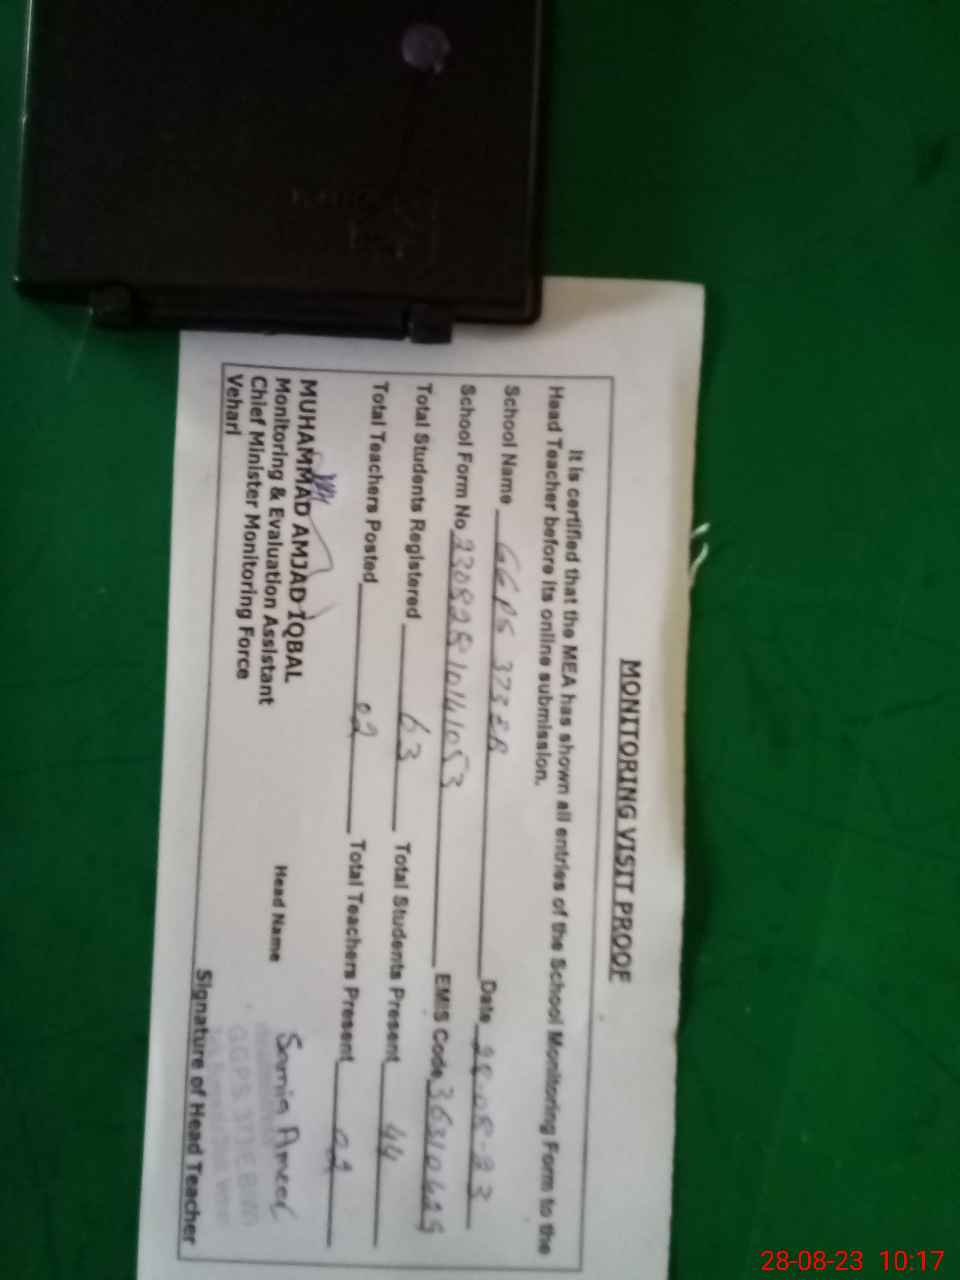 MONITORING VISIT PROOF
It is certified that the MEA has shown all entries of the School Monitoring Form to the
Head Teacher before its online submission.
School Name GGPS 373 EB Date 28-08-23
School Form No 230828101141053 EMIS Code 36310429
Total Students Registered 63 Total Students Present 44
Total Teachers Posted 02 Total Teachers Present 02
MUHAMMAD AMJAD IQBAL
Monitoring & Evaluation Assistant
Chief Minister Monitoring Force
Vehari
Head Name Samia Ameer
GGPS. 373/E.B
Signature of Head Teacher
28-08-23 10:17